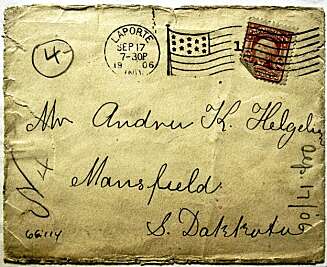 4
LAPORTE
SEP 17
7-30P
1906
IND.
1
Mr Andrew K. Helgelien
Mansfield
S. Dakkota
4
66114
Sep. 17/06